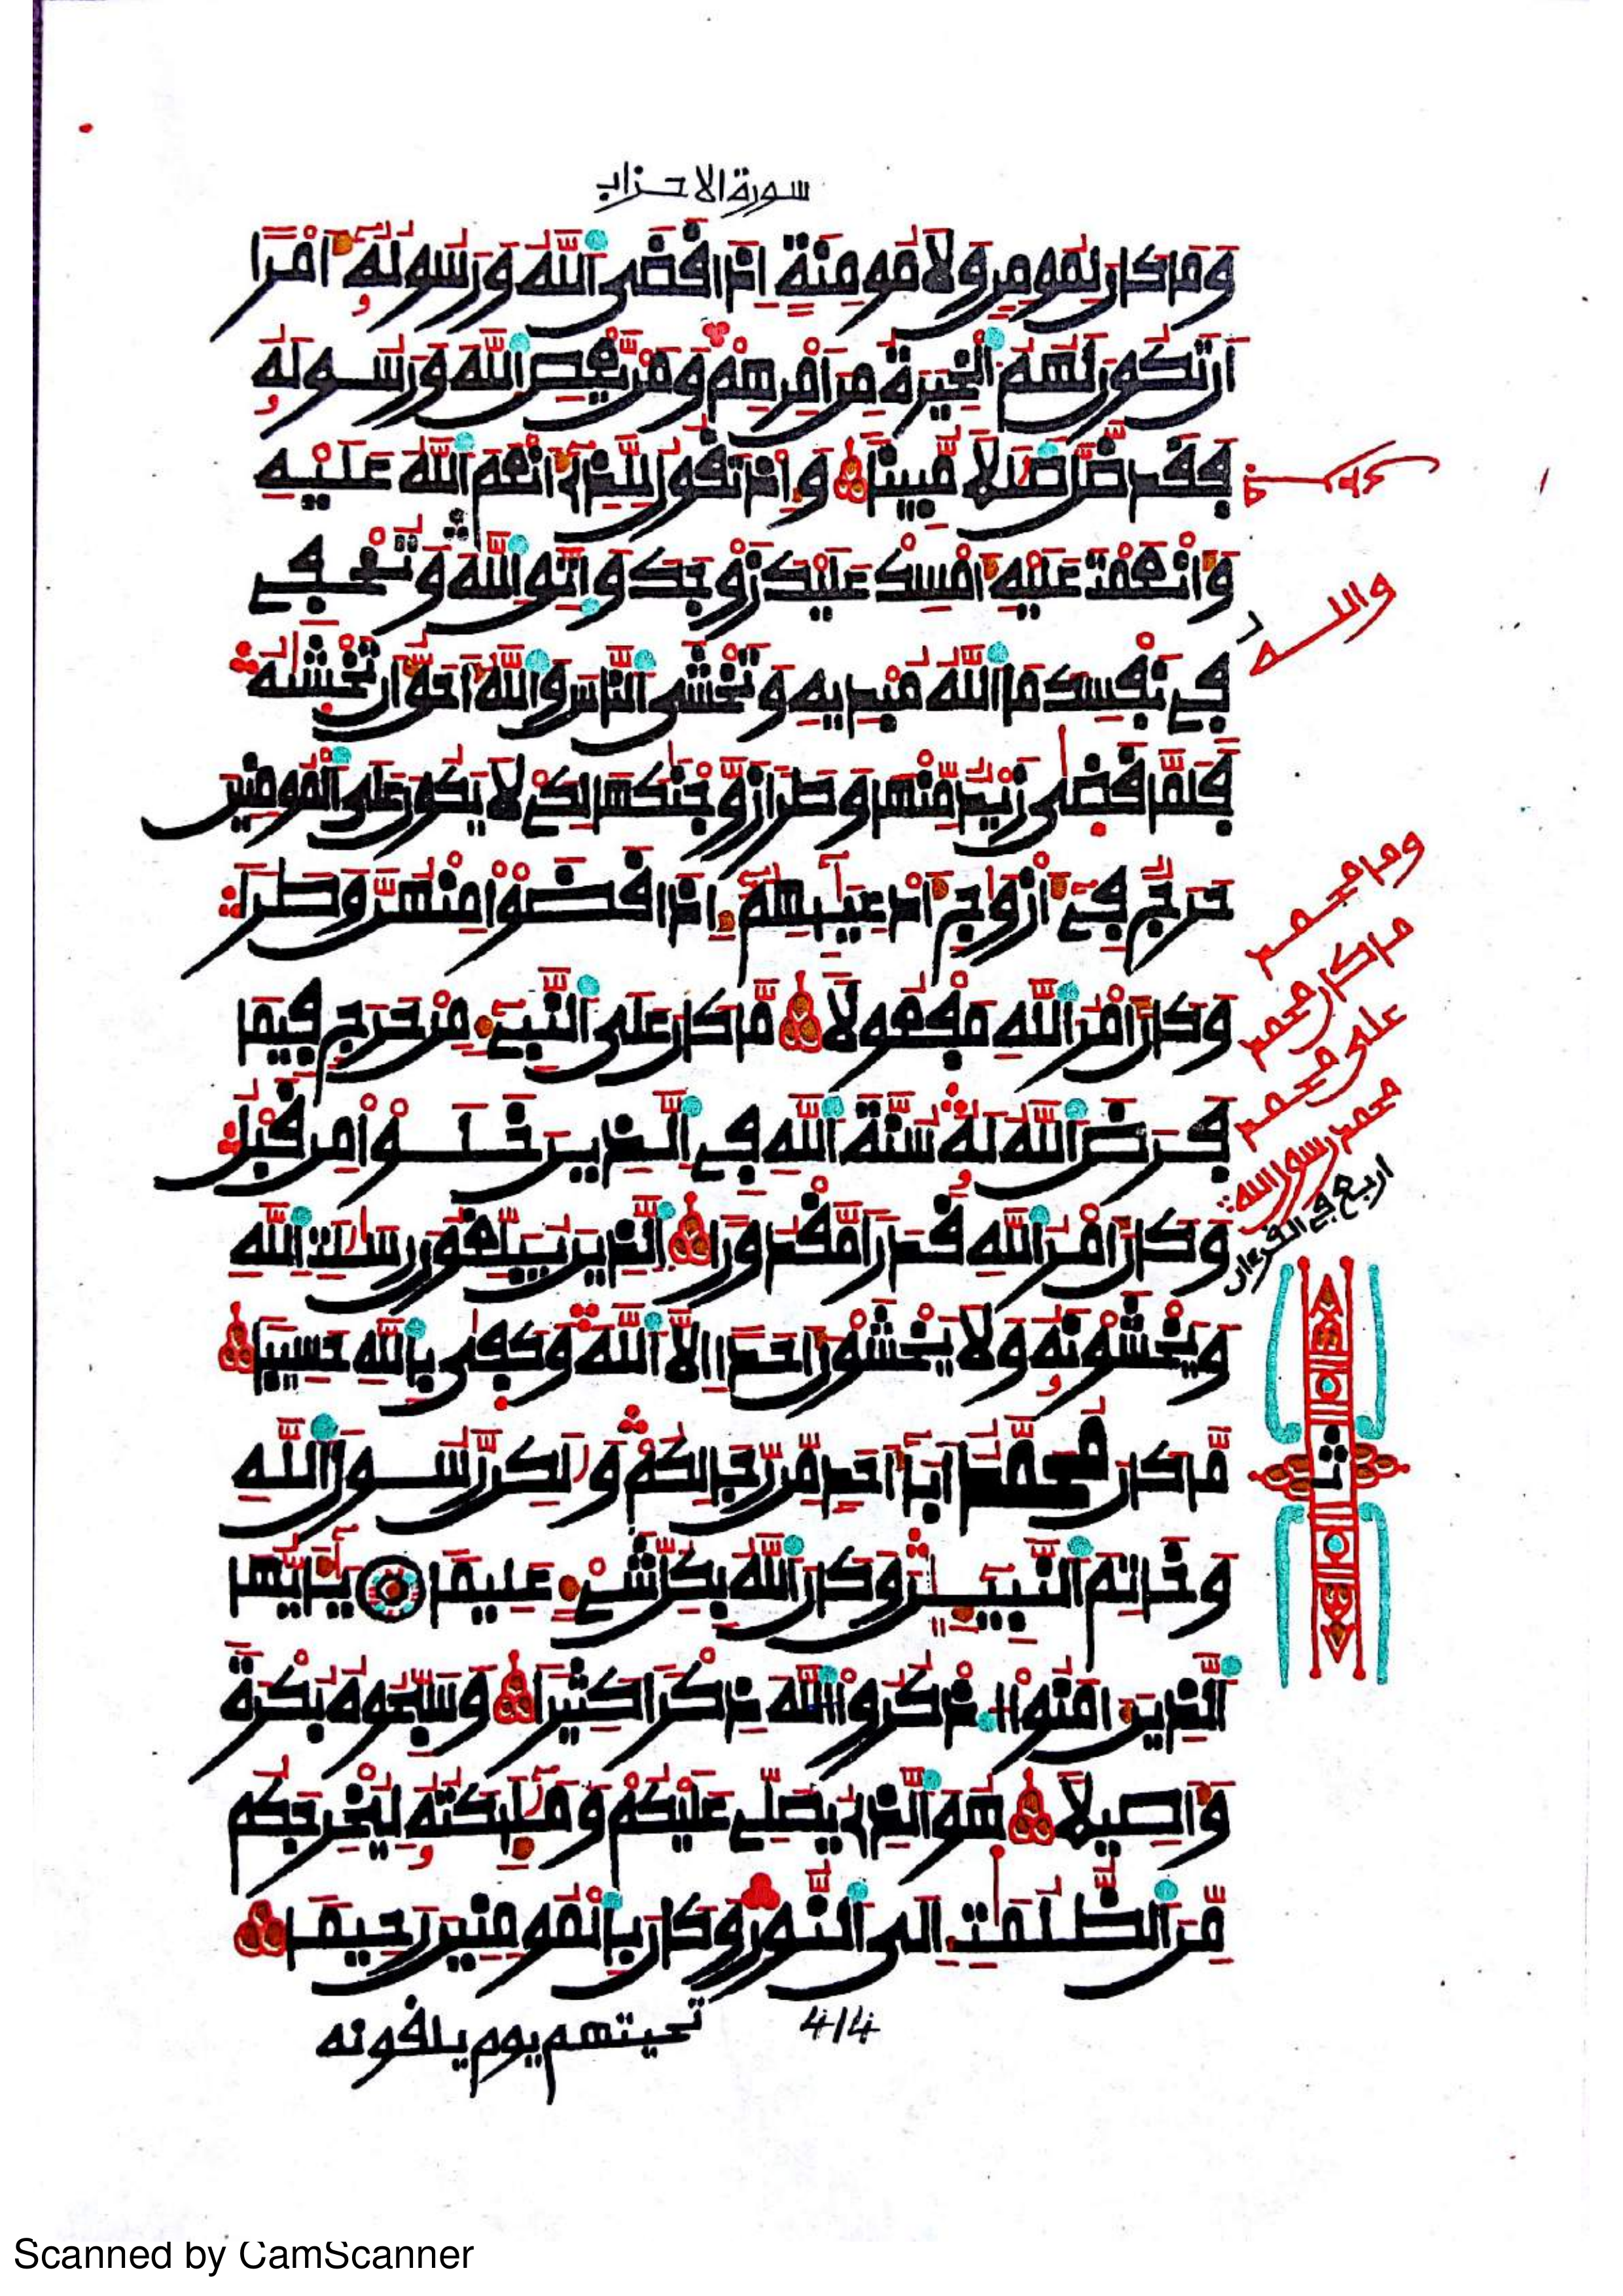 سورة الاحزاب
وَمَا كَانَ لِمُومِنٍ وَلَا مُومِنَةٍ اِذَا قَضَى اَللَّهُ وَرَسُولُهُ أَمْرًا
اَن تَكُونَ لَهُمُ اُلْخِيَرَةُ مِنَ اَمْرِهِمْ وَمَنْ يَّعْصِ اِللَّهَ وَرَسُولَهُ
فَقَد ضَّلَّ ضَلَٰلًا مُّبِينًا وَإِذْ تَقُولُ لِلَّذِے أَنْعَمَ اَللَّهُ عَلَيْهِ
وَأَنْعَمْتَ عَلَيْهِ أَمْسِكْ عَلَيْكَ زَوْجَكَ وَاتَّقِ اِللَّهَ وَتُخْفِے
فِے نَفْسِكَ مَا اَللَّهُ مُبْدِيهِ وَتَخْشَى اَلنَّاسَ وَاللَّهُ أَحَقُّ أَن تَخْشَىٰهُ
فَلَمَّا قَضَىٰ زَيْدٌ مِّنْهَا وَطَرًا زَوَّجْنَٰكَهَا لِكَےْ لَا يَكُونَ عَلَى اَلْمُومِنِينَ
حَرَجٌ فِے أَزْوَٰجِ أَدْعِيَآئِهِمُ إِذَا قَضَوْا مِنْهُنَّ وَطَرًا
وَكَانَ أَمْرُ اُللَّهِ مَفْعُولًا مَّا كَانَ عَلَى اَلنَّبِےٓءِ مِنْ حَرَجٍ فِيمَا
فَرَضَ اَللَّهُ لَهُ سُنَّةَ اَللَّهِ فِے اِلذِينَ خَلَوْا مِن قَبْلُ
وَكَانَ أَمْرُ اُللَّهِ قَدَرًا مَّقْدُورًا اِلذِينَ يُبَلِّغُونَ رِسَٰلَٰتِ اِللَّهِ
وَيَخْشَوْنَهُ وَلَا يَخْشَوْنَ أَحَدًا اِلَّا اَللَّهَ وَكَفَىٰ بِاللَّهِ حَسِيبًا
مَّا كَانَ مُحَمَّدٌ اَبَآ أَحَدٍ مِّن رِّجَالِكُمْ وَلَٰكِن رَّسُولَ اَللَّهِ
وَخَاتِمَ اَلنَّبِيٓـِٕينَ وَكَانَ اَللَّهُ بِكُلِّ شَےْءٍ عَلِيمًا يَٰٓأَيُّهَا
اَلذِينَ ءَامَنُوا اُذْكُرُوا اُللَّهَ ذِكْرًا كَثِيرًا وَسَبِّحُوهُ بُكْرَةً
وَأَصِيلًا هُوَ اَلذِے يُصَلِّے عَلَيْكُمْ وَمَلَٰٓئِكَتُهُ لِيُخْرِجَكُم
مِّنَ اَلظُّلُمَٰتِ إِلَى اَلنُّورِ وَكَانَ بِالْمُومِنِينَ رَحِيمًا
تحيتهم يوم يلقونه
414
واللـه
وما محمد
ما كان محمد
على محمد
محمد رسول الله
اربع في القرءان
ثمن
Scanned by CamScanner